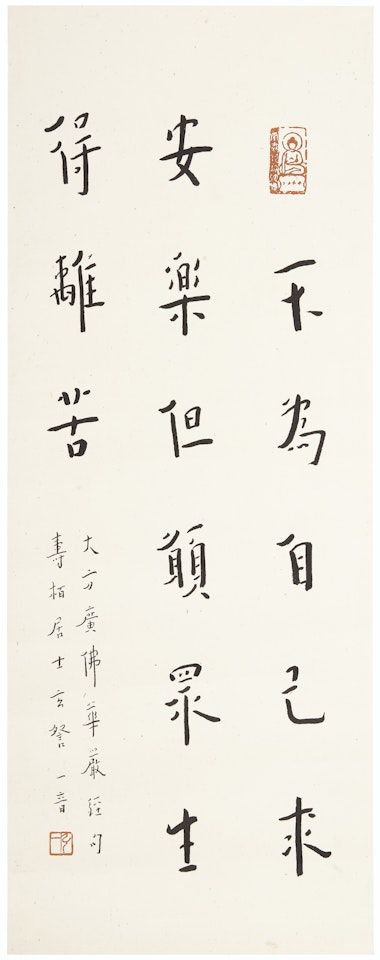 不為自己求
安樂但願眾生
得離苦
大方廣佛華嚴經句
壽栢居士玄詧 一音